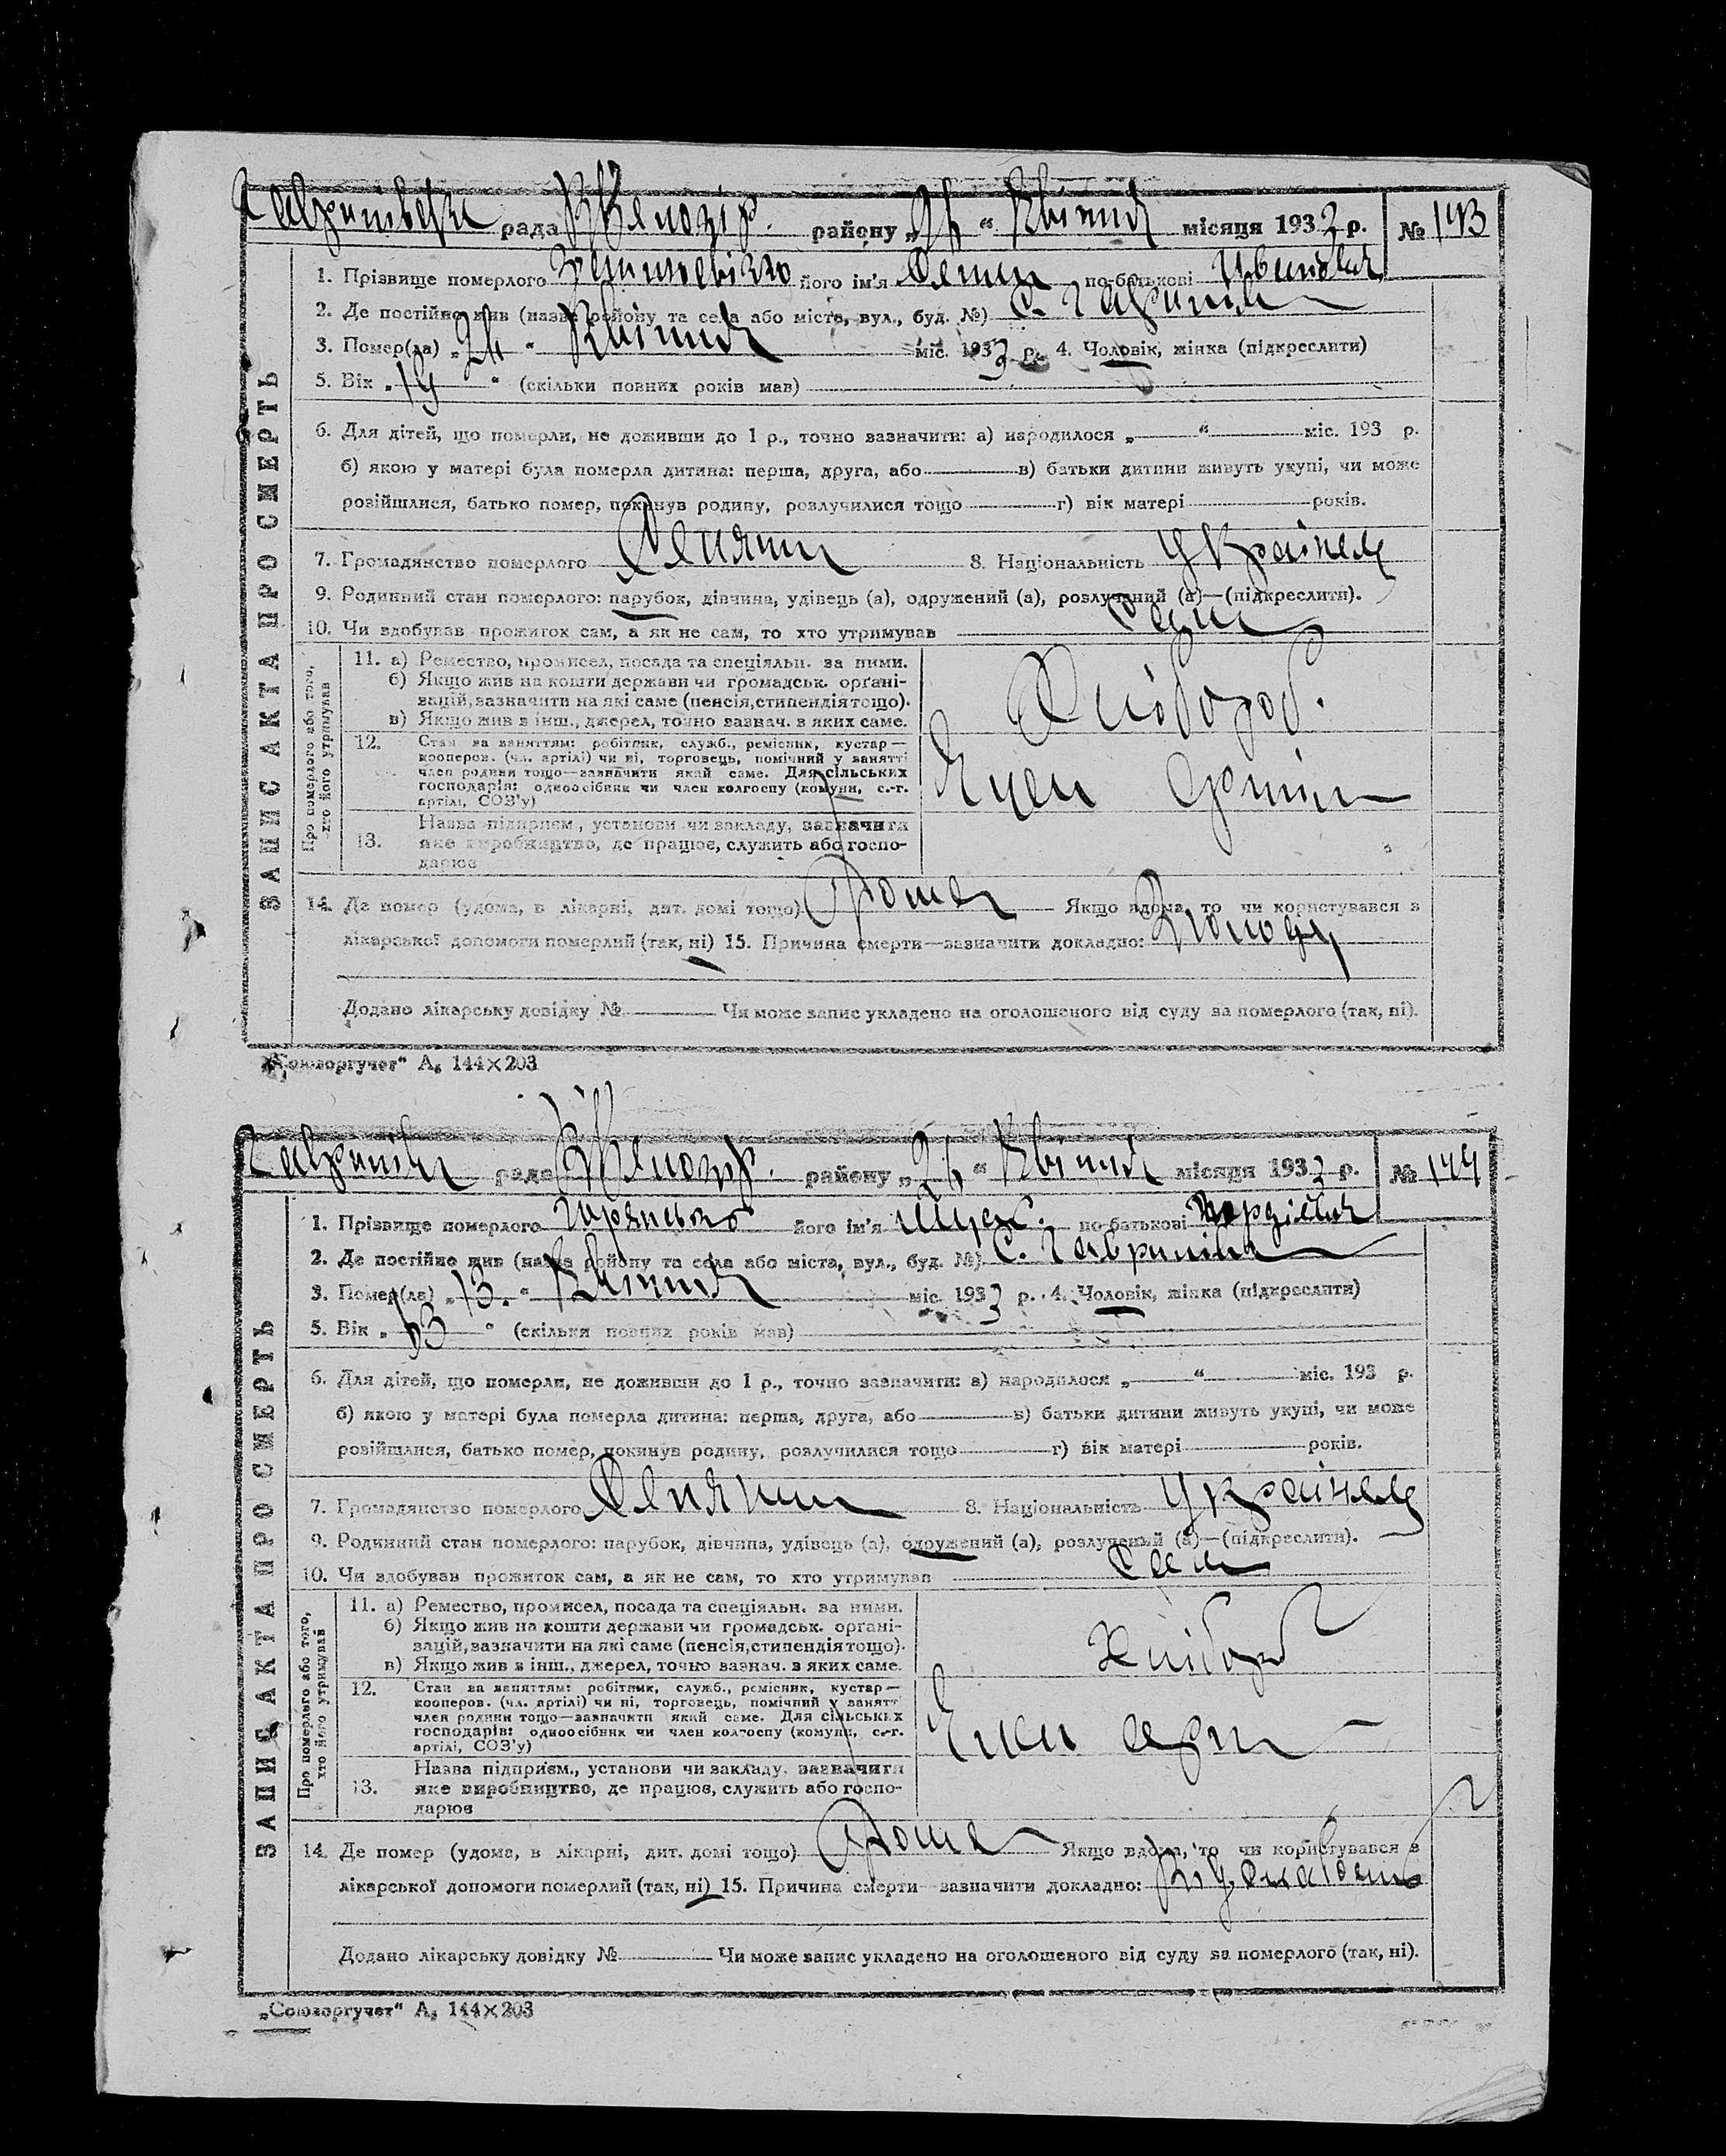 рада района „24“ Квітня місяця 1933 р. № 143
ЗАПИС АКТА ПРО СМЕРТЬ
1. Прізвище померлого його ім'я по-батькові Іванович
2. Де постійно жив (назва району та села або міста, вул., буд. №) с. Гаврилівка
3. Помер(ла) „24“ Квітня міс. 1933 р. 4. Чоловік, жінка (підкреслити)
5. Вік „19“ (скільки повних років мав)
6. Для дітей, що померли, не доживши до 1 р., точно зазначити: а) народилося „ “ міс. 193 р.
б) якою у матері була померла дитина: перша, друга, або в) батьки дитини живуть укупі, чи може
розійшлися, батько помер, покинув родину, розлучилися тощо г) вік матері років.
7. Громадянство померлого Селянин 8. Національність Українец
9. Родинний стан померлого: парубок, дівчина, удівець (а), одружений (а), розлучений (а)—(підкреслити).
10. Чи здобував прожиток сам, а як не сам, то хто утримував Сам
Про померлого або того, хто його утримував
11. а) Ремество, промисел, посада та спеціяльн. за ними.
б) Якщо жив на кошти держави чи громадськ. органі-
зацій, зазначити на які саме (пенсія, стипендія тощо).
в) Якщо жив з інш., джерел, точно зазнач. з яких саме.
Хлібороб.
12. Стан за заняттям: робітник, служб., ремісник, кустар—
кооперов. (чл. артілі) чи ні, торговець, помічний у занятті
член родини тощо—зазначити який саме. Для сільських
господарів: одноосібник чи член колгоспу (комуни, с.-г.
артілі, СОЗ'у)
Член артілі
13. Назва підприєм., установи чи закладу, зазначити
яке виробництво, де працює, служить або госпо-
дарює
14. Де помер (удома, в лікарні, дит. домі тощо) Дома Якщо вдома, то чи користувався з
лікарської допомоги померлий (так, ні) 15. Причина смерти—зазначити докладно:
Додано лікарську довідку № Чи може запис укладено на оголошеного від суду за померлого (так, ні).
„Союзоргучет“ А₅ 144×203
рада району „24“ Квітня місяця 1933 р. № 144
ЗАПИС АКТА ПРО СМЕРТЬ
1. Прізвище померлого його ім'я по-батькові
2. Де постійно жив (назва району та села або міста, вул., буд. №) С. Гаврилівка
3. Помер(ла) „13.“ Квітня міс. 1933 р. 4. Чоловік, жінка (підкреслити)
5. Вік „63“ (скільки повних років мав)
6. Для дітей, що померли, не доживши до 1 р., точно зазначити: а) народилося „ “ міс. 193 р.
б) якою у матері була померла дитина: перша, друга, або в) батьки дитини живуть укупі, чи може
розійшлися, батько помер, покинув родину, розлучилися тощо г) вік матері років.
7. Громадянство померлого Селянин 8. Національність Українец
9. Родинний стан померлого: парубок, дівчина, удівець (а), одружений (а), розлучений (а)—(підкреслити).
10. Чи здобував прожиток сам, а як не сам, то хто утримував Сам
Про померлого або того, хто його утримував
11. а) Ремество, промисел, посада та спеціяльн. за ними.
б) Якщо жив на кошти держави чи громадськ. органі-
зацій, зазначити на які саме (пенсія, стипендія тощо).
в) Якщо жив з інш., джерел, точно зазнач. з яких саме.
Хлібороб
12. Стан за заняттям: робітник, служб., ремісник, кустар—
кооперов. (чл. артілі) чи ні, торговець, помічний у занятті
член родини тощо—зазначити який саме. Для сільських
господарів: одноосібник чи член колгоспу (комуни, с.-г.
артілі, СОЗ'у)
Член арт
13. Назва підприєм., установи чи закладу, зазначити
яке виробництво, де працює, служить або госпо-
дарює
14. Де помер (удома, в лікарні, дит. домі тощо) Дома Якщо вдома, то чи користувався з
лікарської допомоги померлий (так, ні) 15. Причина смерти—зазначити докладно:
Додано лікарську довідку № Чи може запис укладено на оголошеного від суду за померлого (так, ні).
„Союзоргучет“ А₅ 144×203